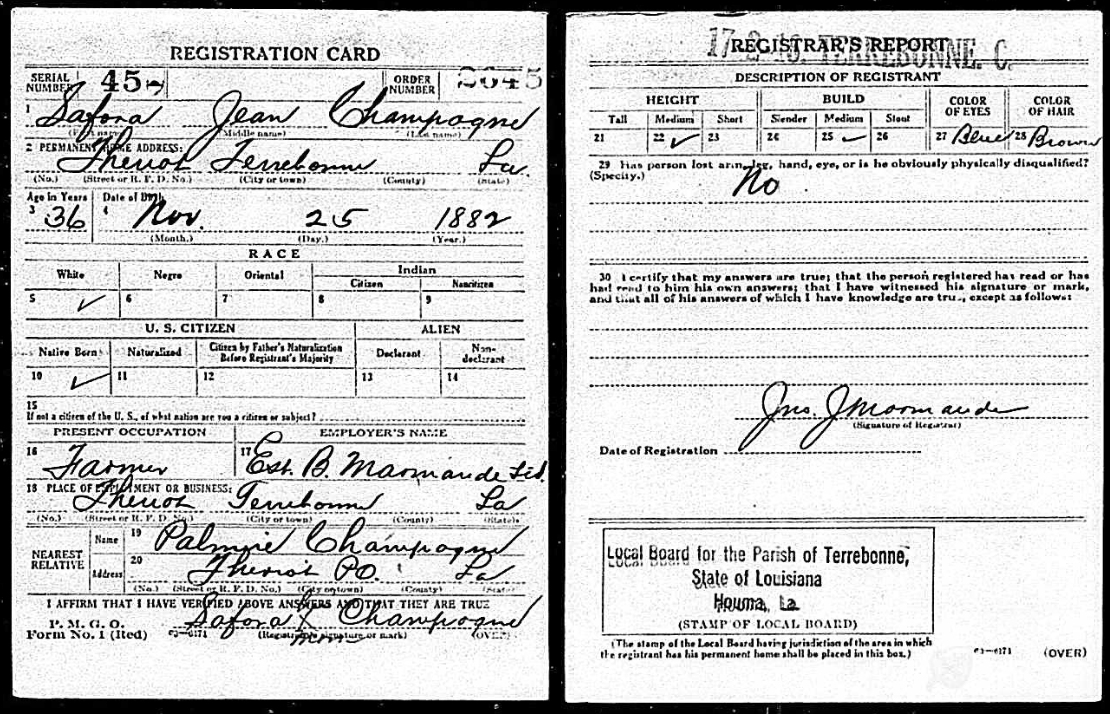 REGISTRATION CARD
SERIAL NUMBER 45
ORDER NUMBER 2645
1 Safora Jean Champagne
(First name) (Middle name) (Last name)
2 PERMANENT HOME ADDRESS:
Theriot Terrebonne La
(No.) (Street or R. F. D. No.) (City or town) (County) (State)
Age in Years Date of Birth
3 36 4 Nov. 25 1882
(Month.) (Day.) (Year.)
RACE
White Negro Oriental Indian
Citizen Noncitizen
5 ✓ 6 7 8 9
U. S. CITIZEN ALIEN
Native Born Naturalized Citizen by Father's Naturalization Before Registrant's Majority Declarant Non-declarant
10 ✓ 11 12 13 14
15
If not a citizen of the U. S., of what nation are you a citizen or subject?
PRESENT OCCUPATION EMPLOYER'S NAME
16 Farmer 17 Est. B. Marmande Ltd.
18 PLACE OF EMPLOYMENT OR BUSINESS:
Theriot Terrebonne La
(No.) (Street or R. F. D. No.) (City or town) (County) (State)
NEAREST RELATIVE
Name 19 Palmire Champagne
Address 20 Theriot P.O. La
(No.) (Street or R. F. D. No.) (City or town) (County) (State)
I AFFIRM THAT I HAVE VERIFIED ABOVE ANSWERS AND THAT THEY ARE TRUE
P. M. G. O.
Form No. 1 (Red) 03—6171 Safora X Champagne
(Registrant's signature or mark) (OVER)
17-2-10. TERREBONNE. C.
REGISTRAR'S REPORT
DESCRIPTION OF REGISTRANT
HEIGHT BUILD COLOR OF EYES COLOR OF HAIR
Tall Medium Short Slender Medium Stout
21 22 ✓ 23 24 25 ✓ 26 27 Blue 28 Brown
29 Has person lost arm, leg, hand, eye, or is he obviously physically disqualified?
(Specify.) No
30 I certify that my answers are true; that the person registered has read or has
had read to him his own answers; that I have witnessed his signature or mark,
and that all of his answers of which I have knowledge are true, except as follows:
Jno. J Marmande
(Signature of Registrar)
Date of Registration
Local Board for the Parish of Terrebonne,
State of Louisiana
Houma, La.
(STAMP OF LOCAL BOARD)
(The stamp of the Local Board having jurisdiction of the area in which
the registrant has his permanent home shall be placed in this box.)
03—6171 (OVER)